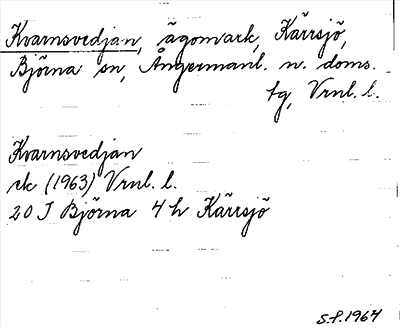 Kvarnsvedjan, ägomark, Kärrsjö,
Björna sn, Ångermanl. n. doms.
tg, Vrnl. l.
Kvarnsvedjan
ek (1963) Vrnl. l.
20 J Björna 4 h Kärrsjö
S.P. 1964